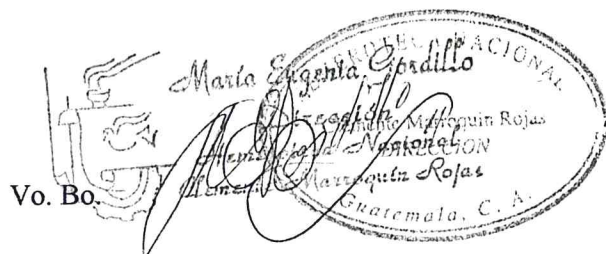 María Eugenia Gordillo
Dirección
Hemeroteca Nacional
Clemente Marroquín Rojas
Vo. Bo.
HEMEROTECA NACIONAL
Clemente Marroquín Rojas
DIRECCION
Guatemala, C. A.